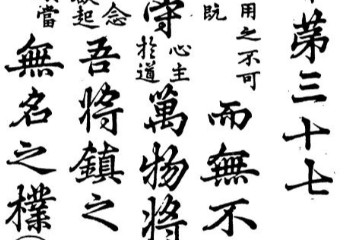 第三十七
用之不可
既
而無不
守
心主
於道
萬物將
念
起
吾將鎮之
當
無名之樸